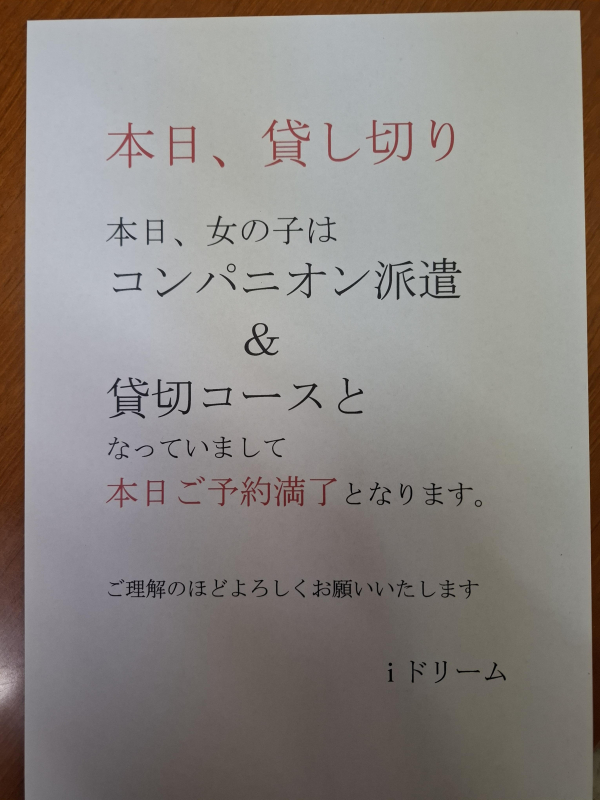 本日、貸し切り
本日、女の子は
コンパニオン派遣
&
貸切コースと
なっていまして
本日ご予約満了となります。
ご理解のほどよろしくお願いいたします
iドリーム